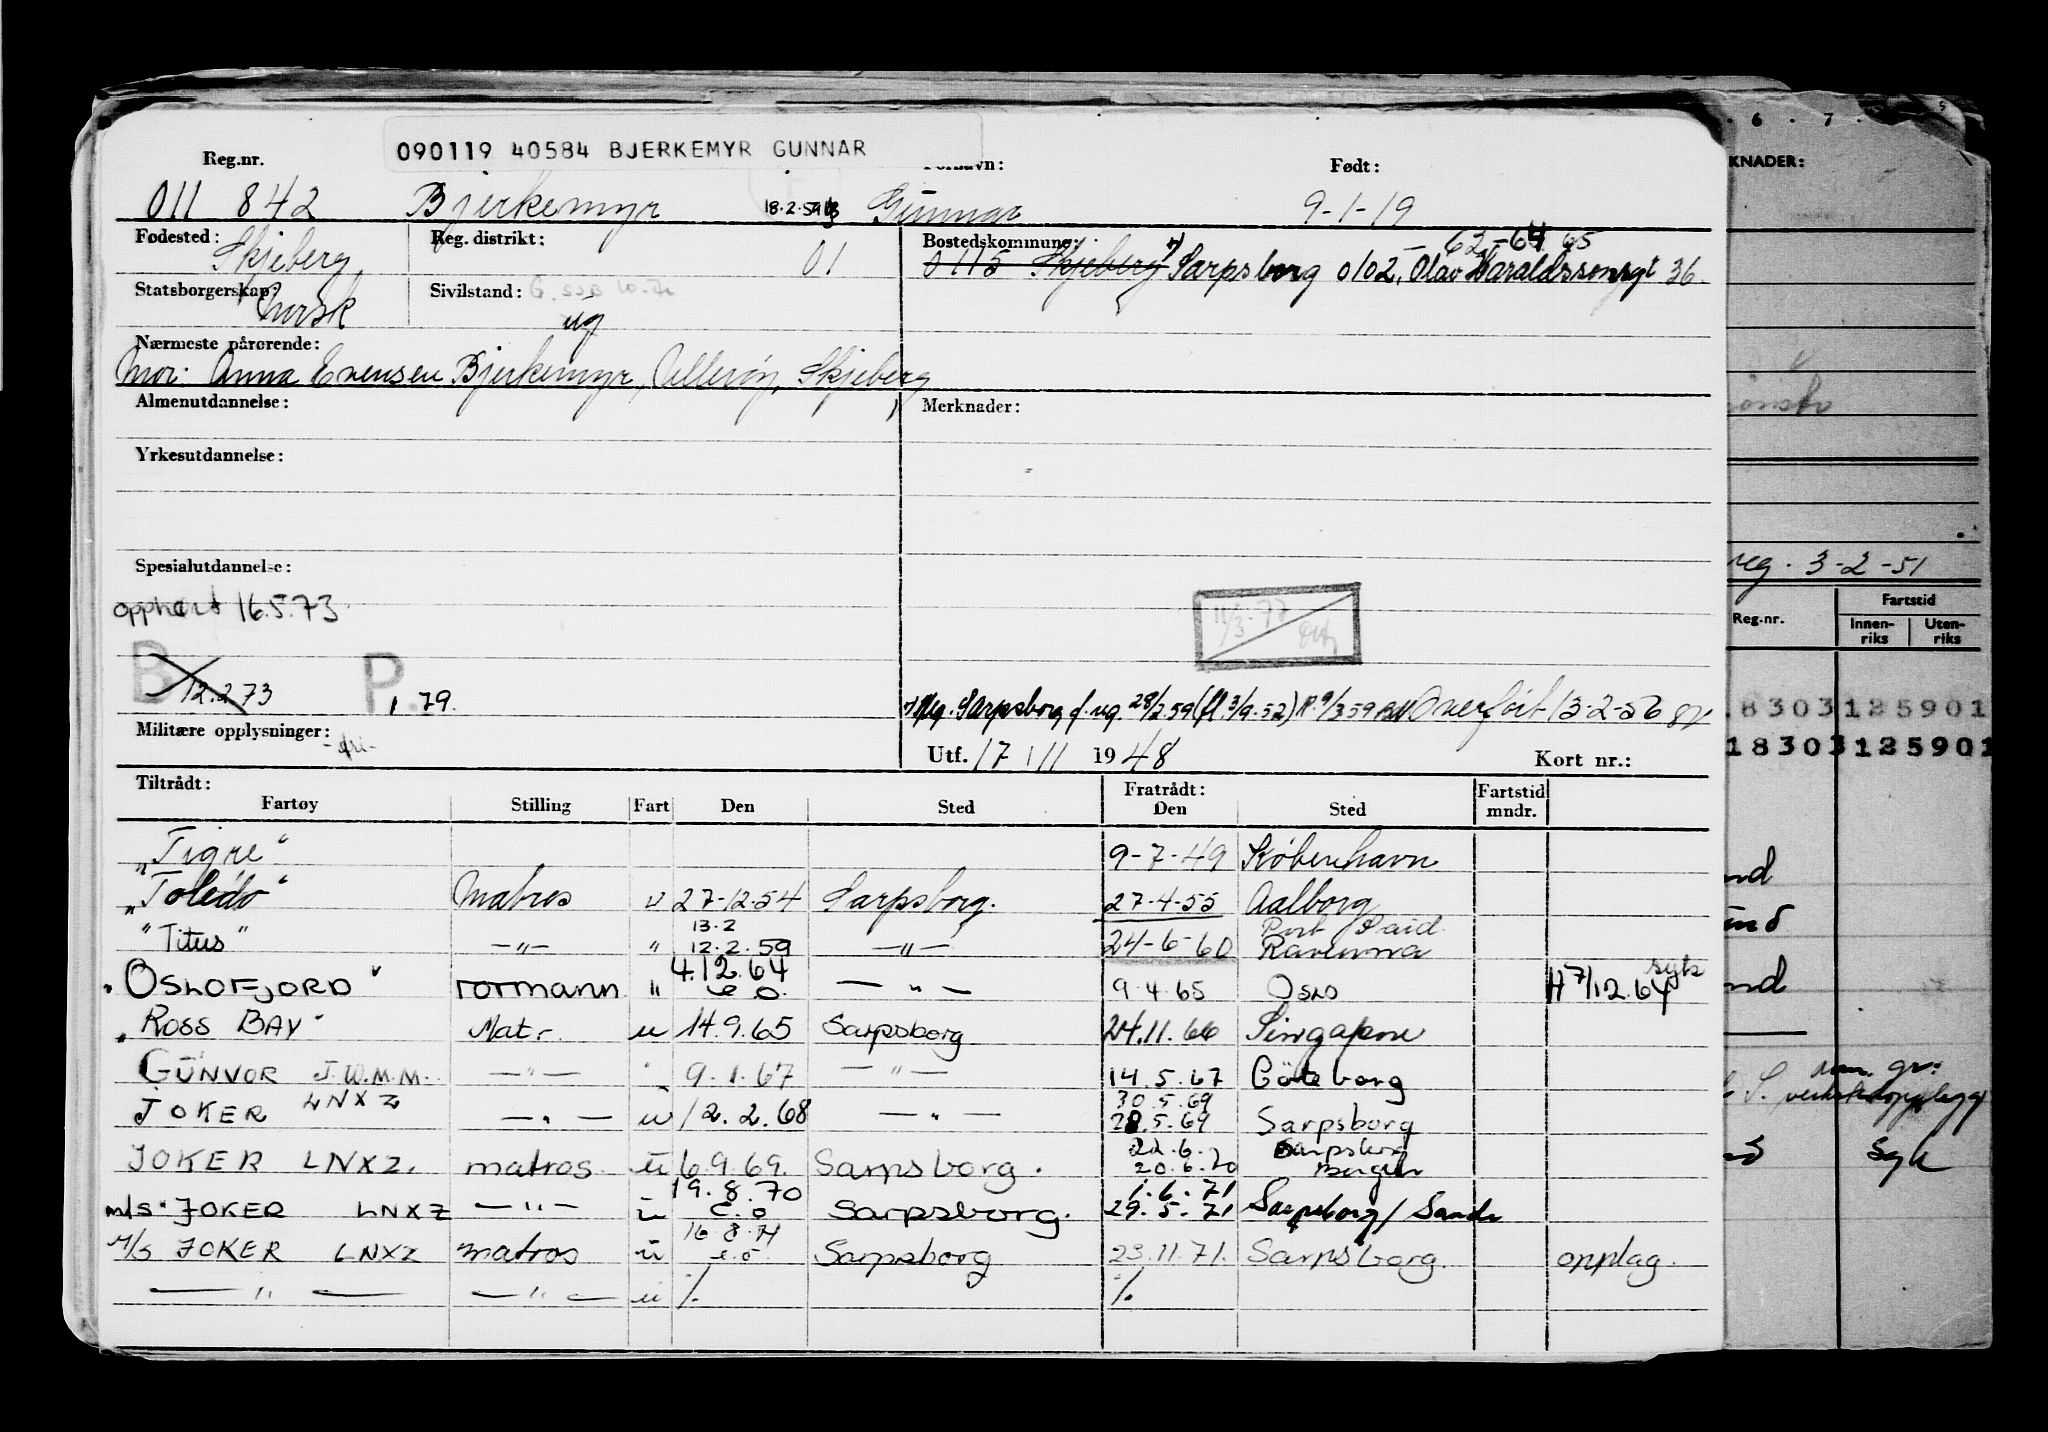 090119 40584 BJERKEMYR GUNNAR
Reg.nr. Født:
011 842 Bjerkemyr 18.2.59 Gunnar 9-1-19
Fødested: Skjeberg Reg. distrikt: 01 Bostedskommune: 62-64 65
0115 Skjeberg Sarpsborg 0102, Olav Haraldssonsgt 36.
Statsborgerskap: norsk Sivilstand: ug
Nærmeste pårørende:
Mor: Anna Evensen Bjerkemyr, Ullerøy, Skjeberg
Almenutdannelse: Merknader:
Yrkesutdannelse:
Spesialutdannelse:
opphørt 16.5.73
B 12.2.73 P. 1.79.
Reg. Sarpsborg f. reg. 28/2.59 (fl. 3/9.52) R. 9/3 59 Overført 13-2-56
Militære opplysninger: -fri-
Utf. 17/11 1948 Kort nr.:
Tiltrådt: Fratrådt: Fartstid
Fartøy Stilling Fart Den Sted Den Sted mndr.
"Tigre" 9-7-49 København
"Toledo" Matros u 27-12-54 Sarpsborg. 27-4-55 Aalborg
13.2 Port Said
"Titus" —"— " 12.2.59 —"— 24-6-60 Ravenna
4.12.64
"OSLOFJORD" rormann " —"— 9.4.65 Oslo H 7/12.64 syk
"ROSS BAY" Matr. u 14.9.65 Sarpsborg 24.11.66 Singapore
GUNVOR J.W.M.M. —"— " 9.1.67 —"— 14.5.67 Göteborg
JOKER LNXZ —"— u 12.2.68 —"— 30.5.69
28.5.69 Sarpsborg
JOKER LNXZ. matros u 6.9.69. Sarpsborg. 22.6.7 Sarpsborg
20.6.70 Bergen
19.8.70 1.6.71
m/s "JOKER LNXZ —"— u e.o Sarpsborg. 29.5.71 Sarpsborg/Sande
16.8.71
M/S JOKER LNXZ matros u e.o. Sarpsborg 23.11.71. Sarpsborg. opplag.
—"— —"— u /. /.
6 . 7 .
KNADER:
reg. 3-2-51
Reg.nr. Fartstid
Innen-riks Uten-riks
8303125901
18303125901
nd
und
nd
syk